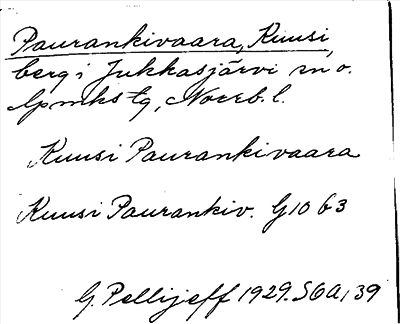 Paurankivaara, Kuusi,
berg i Jukkasjärvi sn o.
lpmkstg, Norrb. l.
Kuusi Paurankivaara
Kuusi Paurankiv. G10 b3
G. Pellijeff 1929. S6A, 39